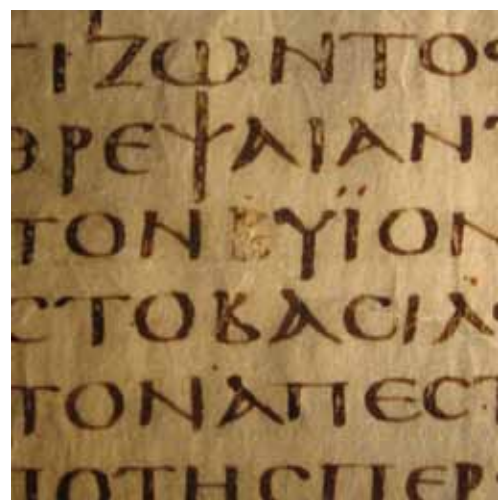 ΤΙΖΩΝΤΟϹ
ΘΡΕΨΑΙΑΝΤ
ΤΟΝ ΥΪΟΝ
ϹΤΟΒΑϹΙΛ
ΤΟΝΑΠΕϹΤ
ΠΟΤΗϹΠΕΡ